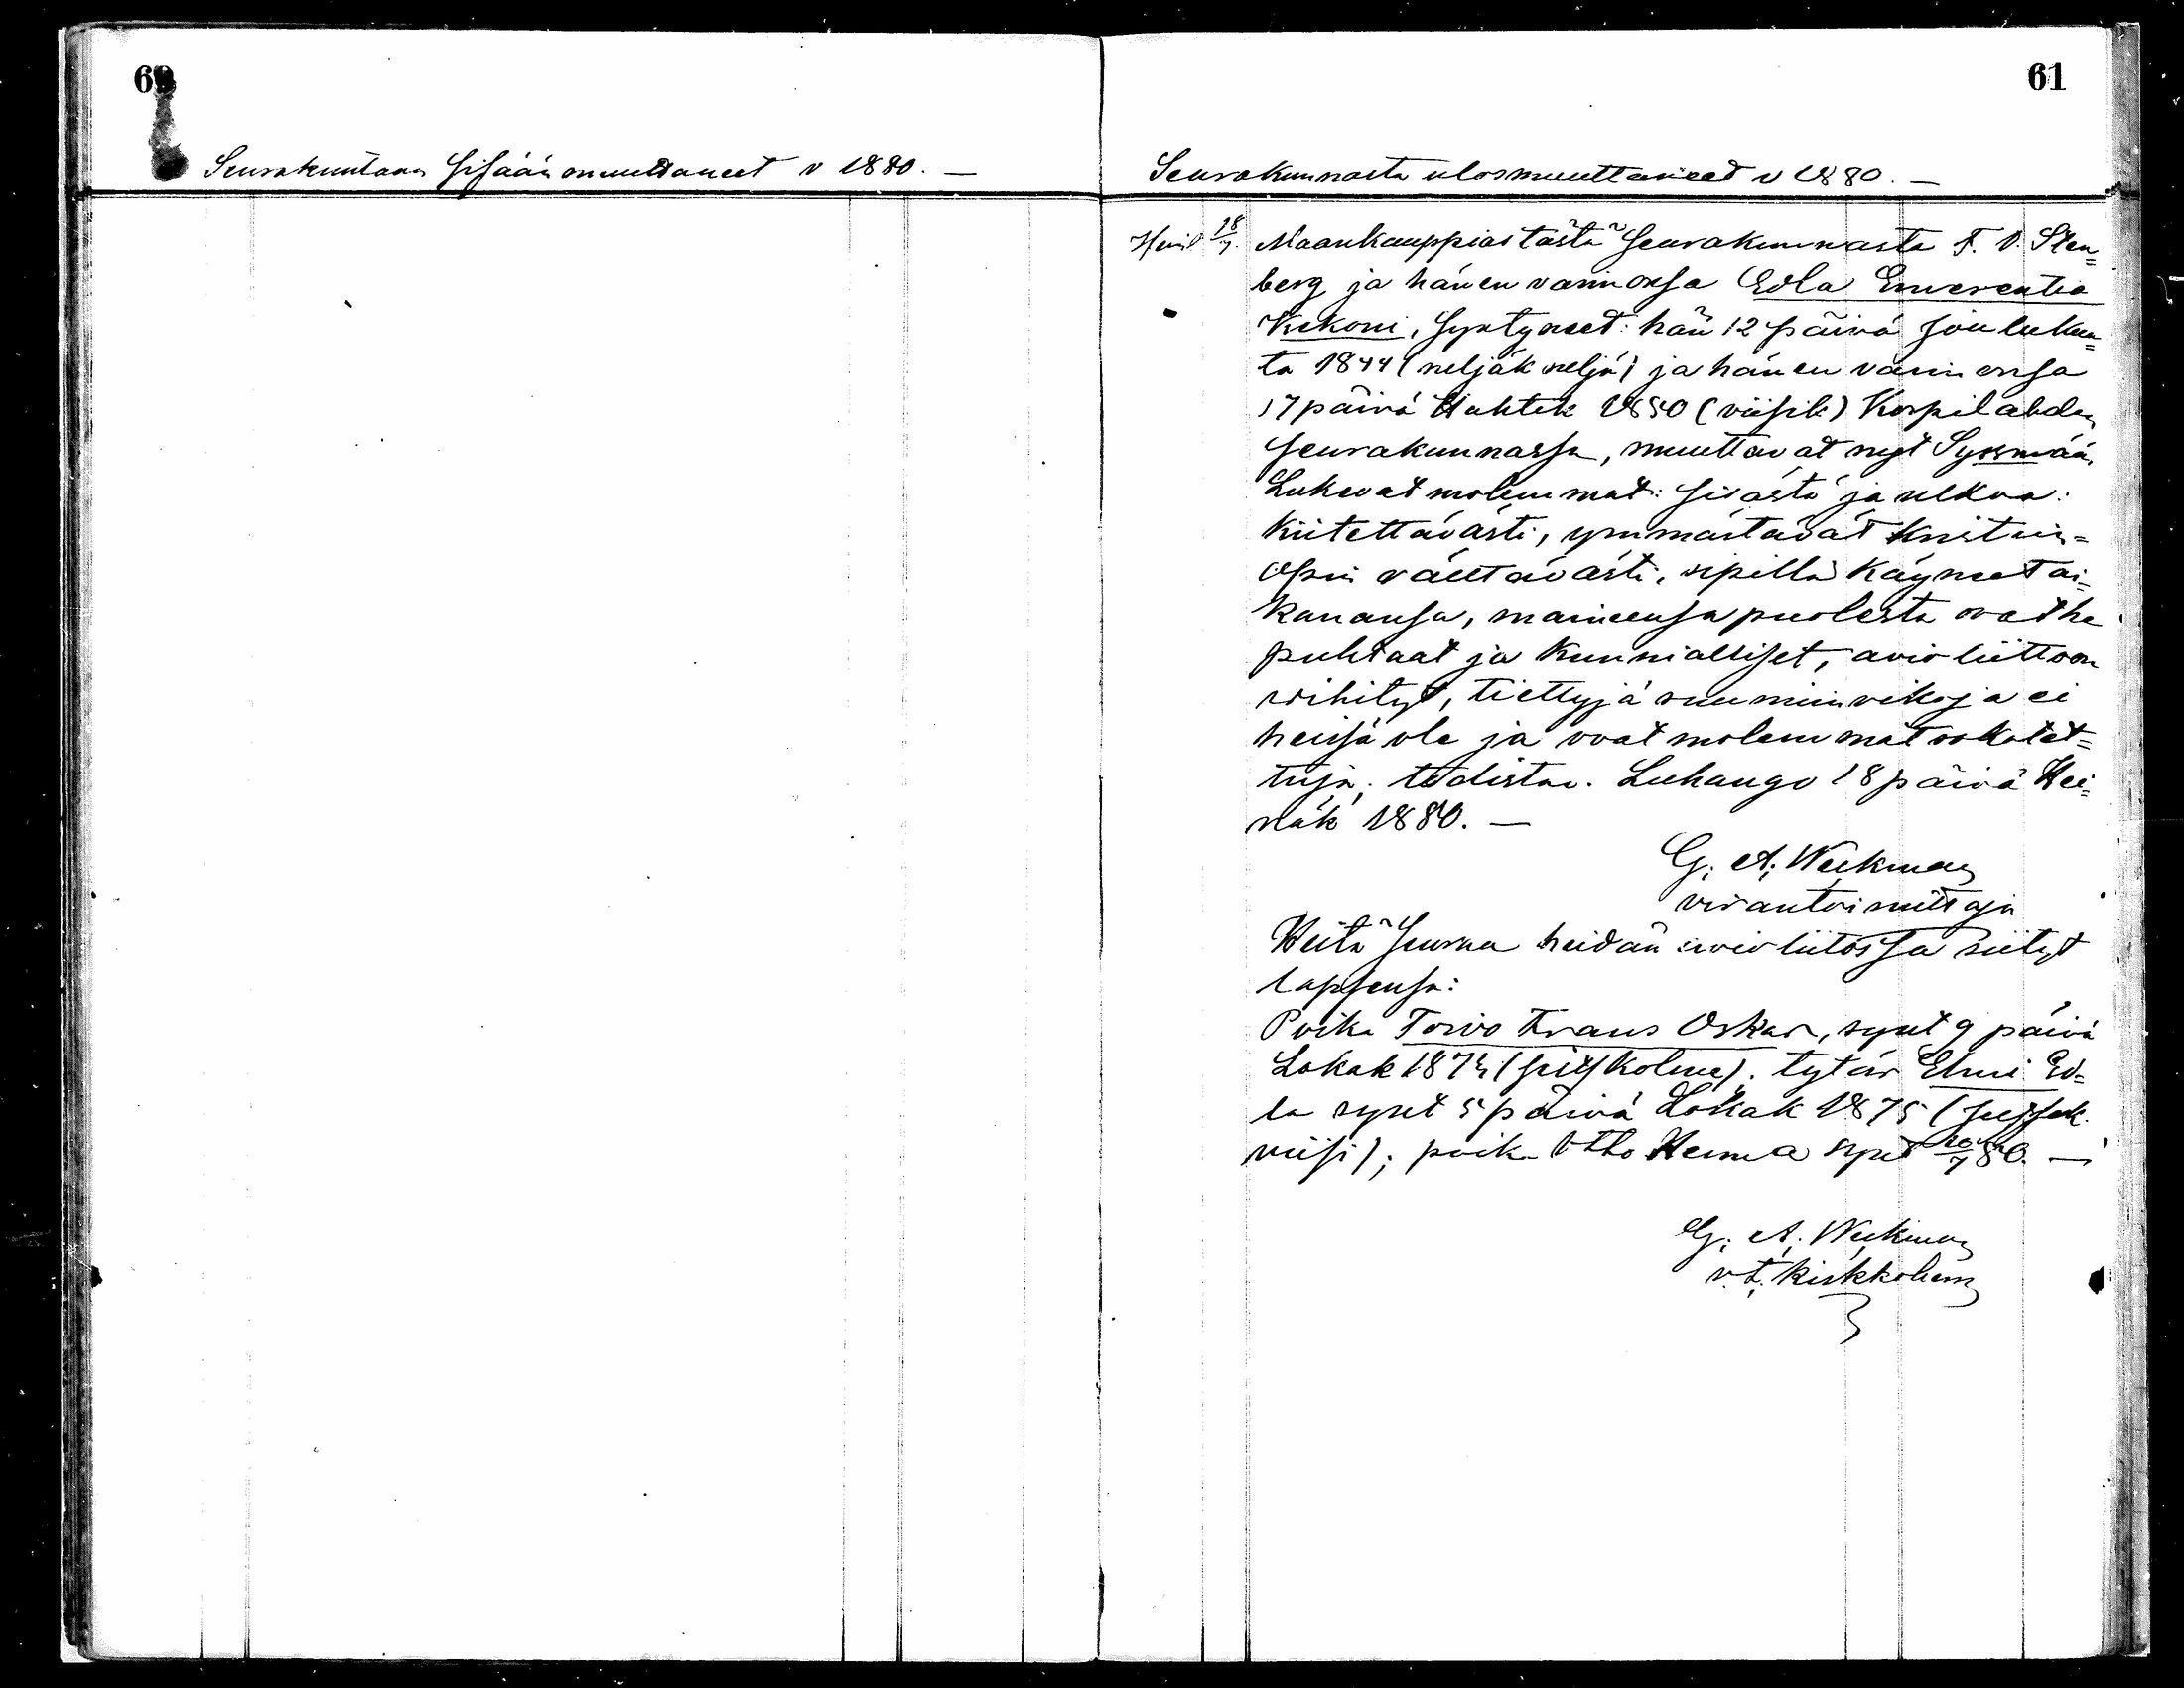 60
Seurakuntaan sisään muuttaneet v 1880. —
61
Seurakunnasta ulosmuuttaneet v 1880. —
18/7. Maankauppias tästä seurakunnasta F. O. Sten=
berg ja hänen vaimonsa Edla Emerentia
Kekoni, syntyneet: hän 12 päivä Joulukuu=
ta 1844 (neljäk neljä) ja hänen vaimonsa
17 päivä Huhtik 1850 (viisik) Korpilahden
seurakunnassa, muuttavat nyt Sysmään
Lukevat molemmat: sisästä ja ulkoa:
kiitettävästi, ymmärtävät Kristin=
opin välttävästi, ripillä käyneet ai=
kanansa, maineensa puolesta ovat he
puhtaat ja kunnialliset, avioliittoon
vihityt, tiettyjä ruumiin vikoja ei
heissä ole ja ovat molemmat rokotet=
tuja; todistaa. Luhango 18 päivä Hei=
näk 1880. —
G. A. Weckman
virantoimittaja
Heitä seuraa heidän avioliitossa siityt
lapsensa:
Poika Toivo Frans Oskar, synt 9 päivä
Lokak 1873 (seits kolme); tytär Elmi Ed=
la synt 5 päivä Lokak 1875 (seitsek.
viisi); poika Otto synt 80. —
G. A. Weckman
v. t. kirkkoherra